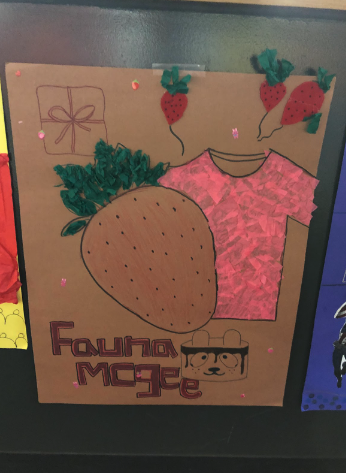 Fauna
McGee